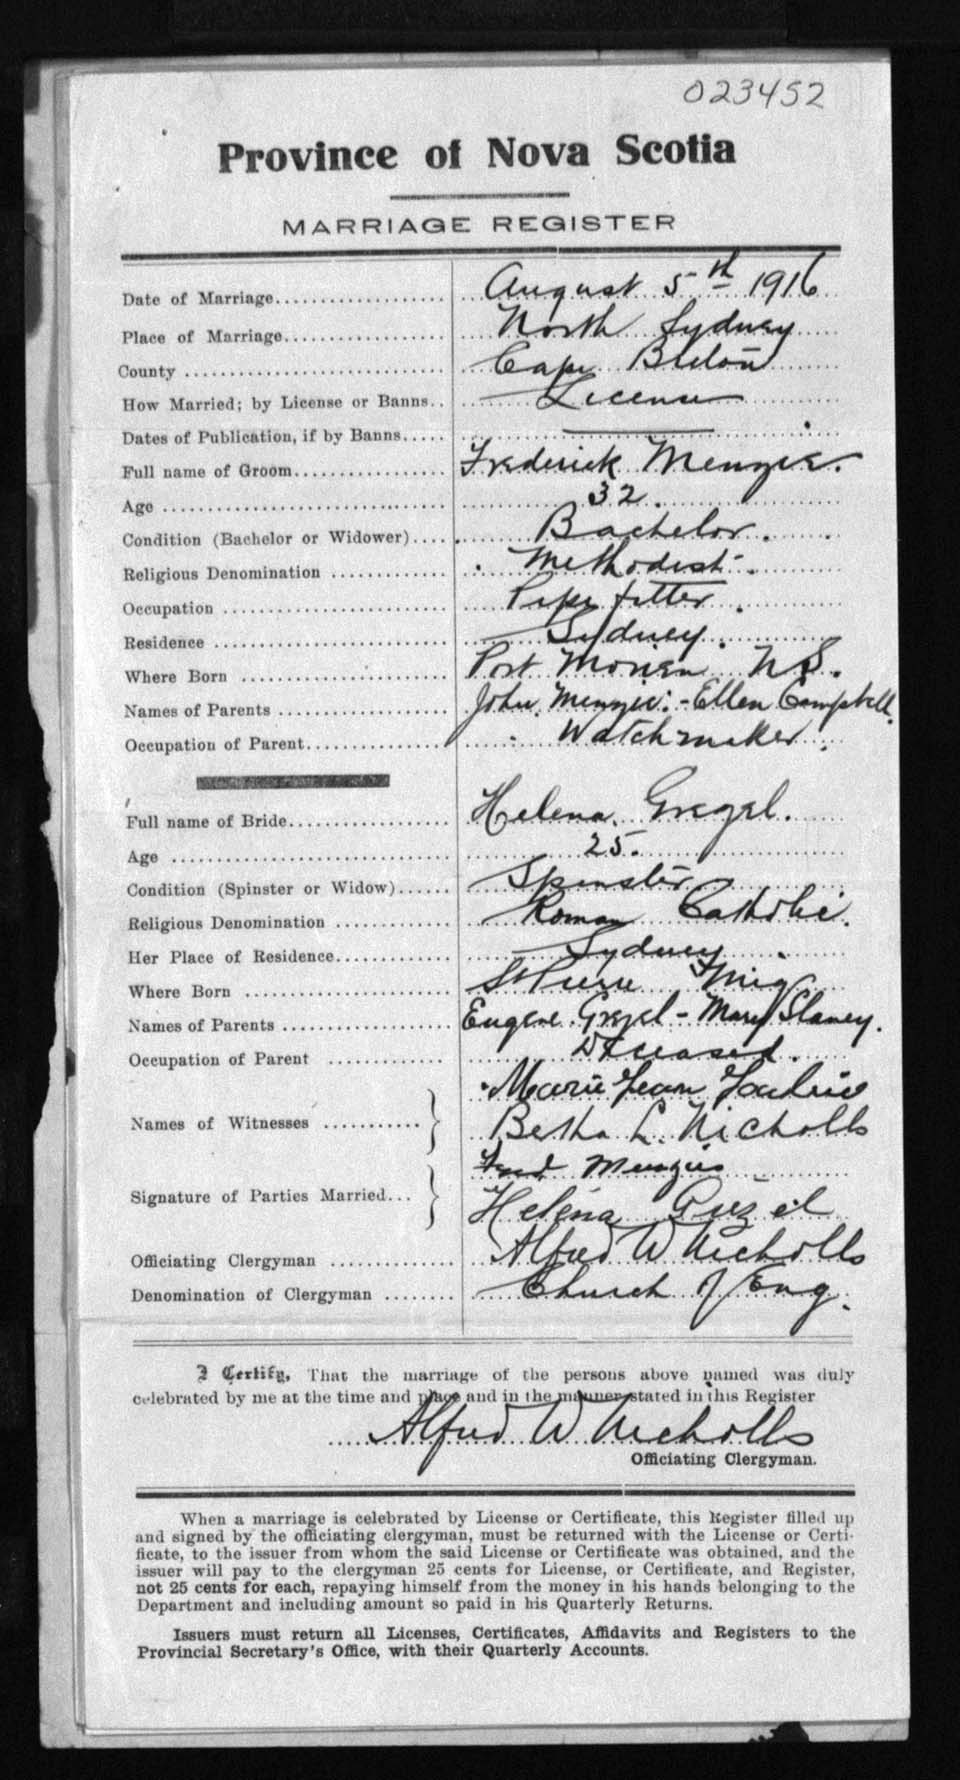 023452
Province of Nova Scotia
MARRIAGE REGISTER
Date of Marriage................... August 5th 1916
Place of Marriage.................. North Sydney
County ............................. Cape Breton
How Married; by License or Banns.. License
Dates of Publication, if by Banns..... ———
Full name of Groom................. Frederick Menzies.
Age ................................ 32.
Condition (Bachelor or Widower).... Bachelor.
Religious Denomination ............. Methodist.
Occupation ......................... Pipe fitter.
Residence .......................... Sydney.
Where Born ....................... Port Morien N.S.
Names of Parents ................... John Menzies - Ellen Campbell.
Occupation of Parent................ Watchmaker.
Full name of Bride.................. Helena Grezel.
Age ............................... 25.
Condition (Spinster or Widow)...... Spinster
Religious Denomination ............. Roman Catholic.
Her Place of Residence............. Sydney.
Where Born ........................ St Pierre Miq
Names of Parents ................... Eugene Grezel - Mary Slaney.
Occupation of Parent .............. Deceased.
Names of Witnesses ........... } Marie Jean
Bertha L. Nicholls
Signature of Parties Married... } Fred Menzies
Helena Grezel
Officiating Clergyman .............. Alfred W Nicholls
Denomination of Clergyman ........ Church of Eng.
I Certify, That the marriage of the persons above named was duly
celebrated by me at the time and place and in the manner stated in this Register
Alfred W Nicholls
Officiating Clergyman.
When a marriage is celebrated by License or Certificate, this Register filled up
and signed by the officiating clergyman, must be returned with the License or Certi-
ficate, to the issuer from whom the said License or Certificate was obtained, and the
issuer will pay to the clergyman 25 cents for License, or Certificate, and Register,
not 25 cents for each, repaying himself from the money in his hands belonging to the
Department and including amount so paid in his Quarterly Returns.
Issuers must return all Licenses, Certificates, Affidavits and Registers to the
Provincial Secretary's Office, with their Quarterly Accounts.